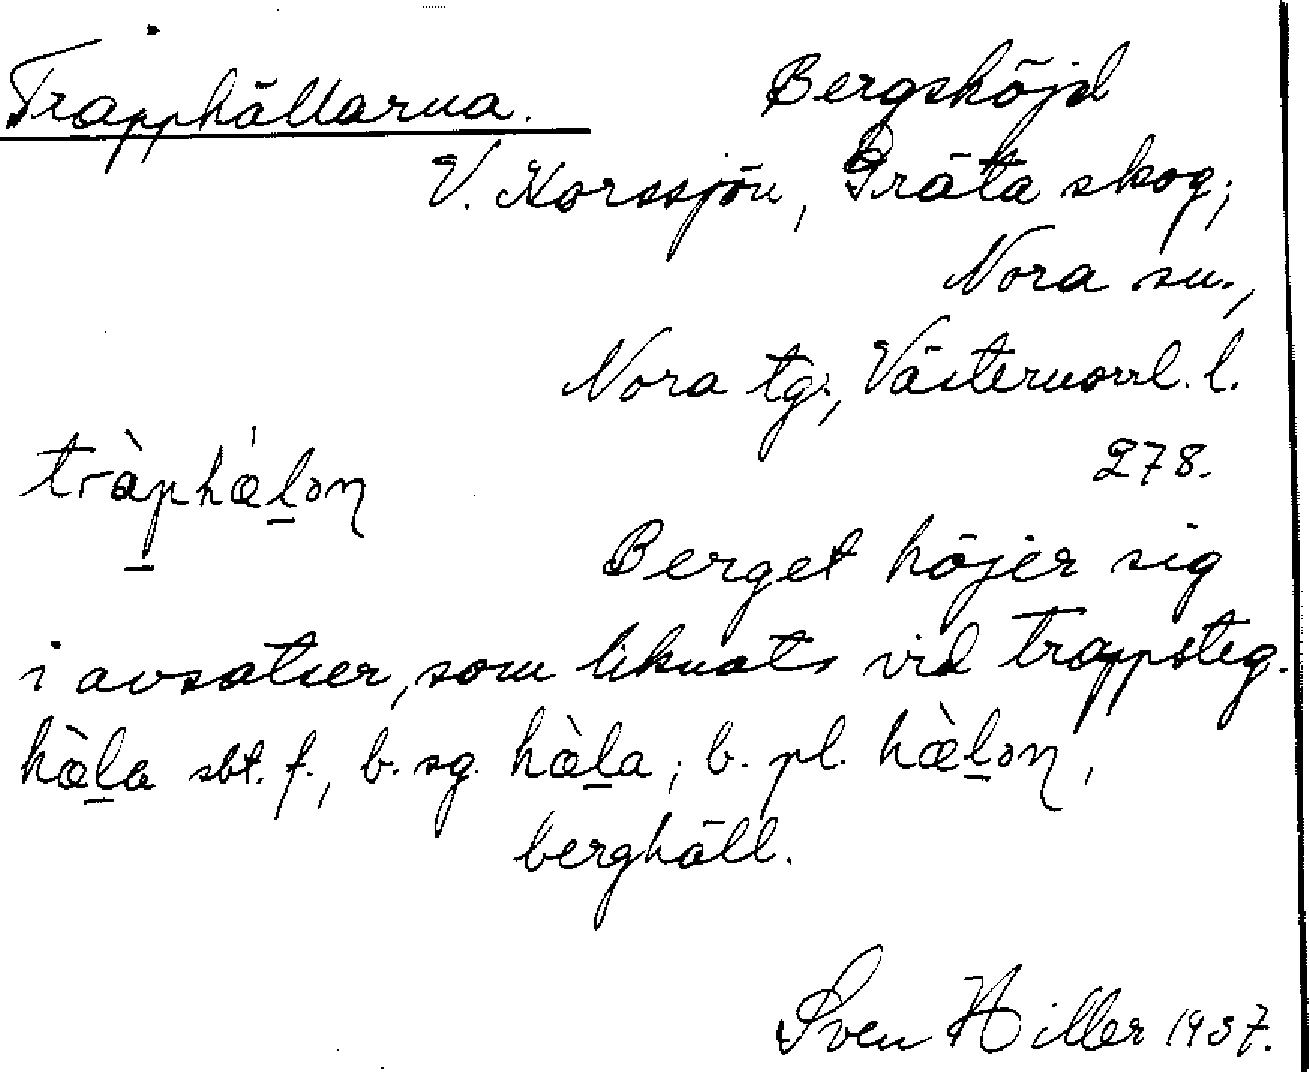 Trapphällarna. Bergshöjd
V. Korssjön, Gräta skog,
Nora sn.,
Nora tg., Västernorrl. l.
278.
tràphæ̀lən
Berget höjer sig
i avsatser, som liknats vid trappsteg.
hæ̀la sbt. f., b. sg. hæ̀la; b. pl. hæ̀lən,
berghäll.
Sven Hiller 1937.